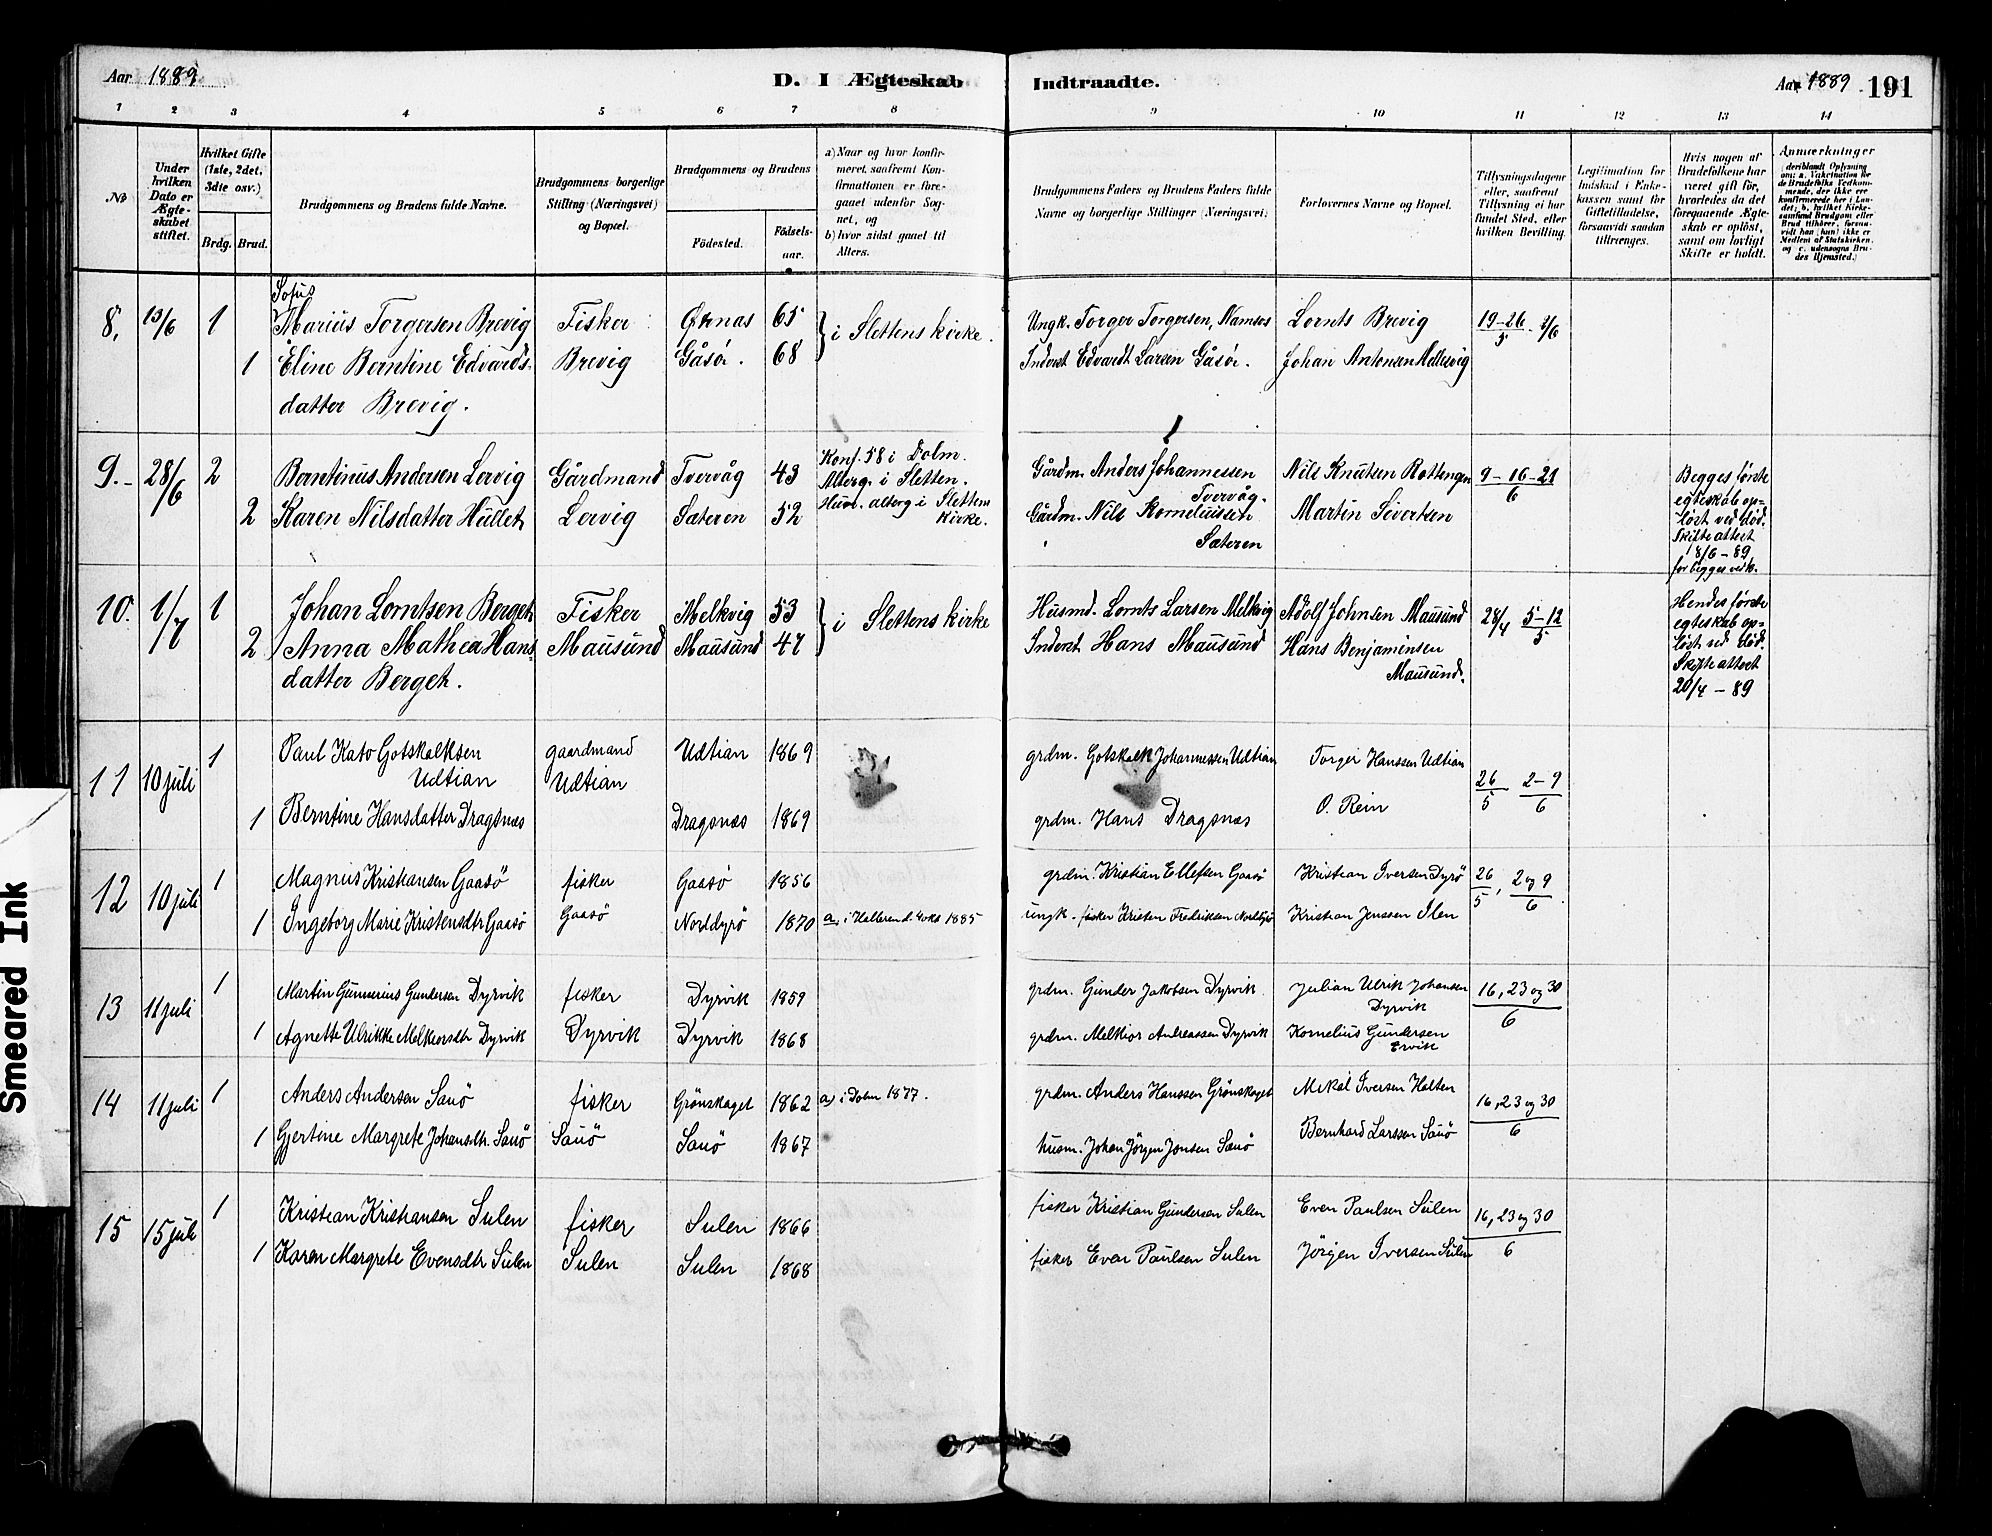 Aar 1889
D. I Ægteskab Indtraadte.
Aar 1889 191
1 2 3 4 5 6 7 8 9 10 11 12 13 14
No
Under hvilken Dato er Ægteskabet stiftet.
Hvilket Gifte (1ste, 2det, 3die osv.)
Brdg. Brud.
Brudgommens og Brudens fulde Navne.
Brudgommens borgerlige Stilling (Næringsvei) og Bopæl.
Brudgommens og Brudens
Födested.
Födsels-aar.
a) Naar og hvor konfirmeret, saafremt Konfirmationen er foregaaet udenfor Sognet, og
b) hvor sidst gaaet til Alters.
Brudgommens Faders og Brudens Faders fulde Navne og borgerlige Stillinger (Næringsvei)
Forlovernes Navne og Bopæl.
Tillysningsdagene eller, saafremt Tillysning ei har fundet Sted, efter hvilken Bevilling.
Legitimation for Indskud i Enkekassen samt for Giftetilladelse, forsaavidt saadan tiltrænges.
Hvis nogen af Brudefolkene har været gift för, hvorledes da det foregaaende Ægteskab er oplöst, samt om lovligt Skifte er holdt.
Anmærkninger
Sofus
8, 13/6 1 Marius Torgersen Brevig Fisker Ørnas 65 } i Slettens kirke. Ungk. Torger Torgersen, Namsos Lornts Brevig 19-26/5 - 2/6
1 Eline Berntine Edvards- Brevig Gåsör. 68 Inderst Edvardt Larsen Gåsör. Johan Antonsen Hellesvig
datter Brevig.
9. 28/6 2 Berntinus Andersen Lervig Gårdmand Tvervåg 43 Konf. 58 i Dolm. Alterg. i Sletten. Gårdm. Anders Johannessen Tvervåg. Nils Knutsen Rottengen 9-16-21/6
2 Karen Nilsdatter Hullet Lervig Sæteren 52 Hun. alterg i Slettens kirke. Gårdm. Nils Korneliussen Sæteren Martin Sivertsen
Begges første
egteskab op-
löst ved død.
Skifteattest
18/6 - 89
for begges vedk.
10. 1/7 1 Johan Lorntsen Berget Fisker Melkvig 53 } i Slettens kirke Husmd. Lornts Larsen Melkvig Adolf Johnsen Mausund 28/4 5-12/5
2 Anna Mathea Hans- Mausund Mausund 47 Inderst Hans Mausund Hans Benjaminsen Mausund.
datter Berget.
Hendes første
egteskab op-
löst ved død.
Skifteattest
20/4 - 89
11 10 juli 1 Paul Kato Gotskalksen Udtian gaardmand Udtian Udtian 1869 grdm. Gotskalk Johannessen Udtian Torger Hanssen Udtian 26/5 2-9/6
1 Berntine Hansdatter Dragsnæs Dragsnæs 1869 grdm. Hans Dragsnæs O. Rein
12 10 juli 1 Magnus Kristiansen Gaasö fisker Gaasö 1856 grdm. Kristian Ellefsen Gaasö Kristian Iversen Dyrö 26/5, 2 og 9/6
1 Ingeborg Marie Kristensdtr Gaasö Gaasö Norddyrö 1870 a) i Halleren d. 4 okt 1885 ungk. fisker Kristen Fredriksen Norddyrö Kristian Jenssen Ilen
13 11 juli 1 Martin Gunnerius Gundersen Dyrvik fisker Dyrvik 1859 grdm. Gunder Jakobsen Dyrvik Julian Ulrik Johansen Dyrvik 16, 23 og 30/6
1 Agnette Ulrikke Melkiorsdtr Dyrvik Dyrvik Dyrvik 1868 grdm. Melkior Andreassen Dyrvik Kornelius Gundersen Ervik
14 11 juli 1 Anders Andersen Sauö fisker Grönskaget 1862 a) i Dolm 1877. grdm. Anders Hanssen Grönskaget Mikal Iversen Holten 16, 23 og 30/6
1 Gjertine Margrete Johansdtr. Sauö Sauö Sauö 1867 husm. Johan Jörgen Jonsen Sauö Bernhard Larssen Sauö
15 15 juli 1 Kristian Kristiansen Sulen fisker Sulen 1866 fisker Kristian Gundersen Sulen Even Paulsen Sulen 16, 23 og 30/6
1 Karen Margrete Evensdtr Sulen Sulen Sulen 1868 fisker Even Paulsen Sulen Jörgen Iversen Sulen
Smeared Ink